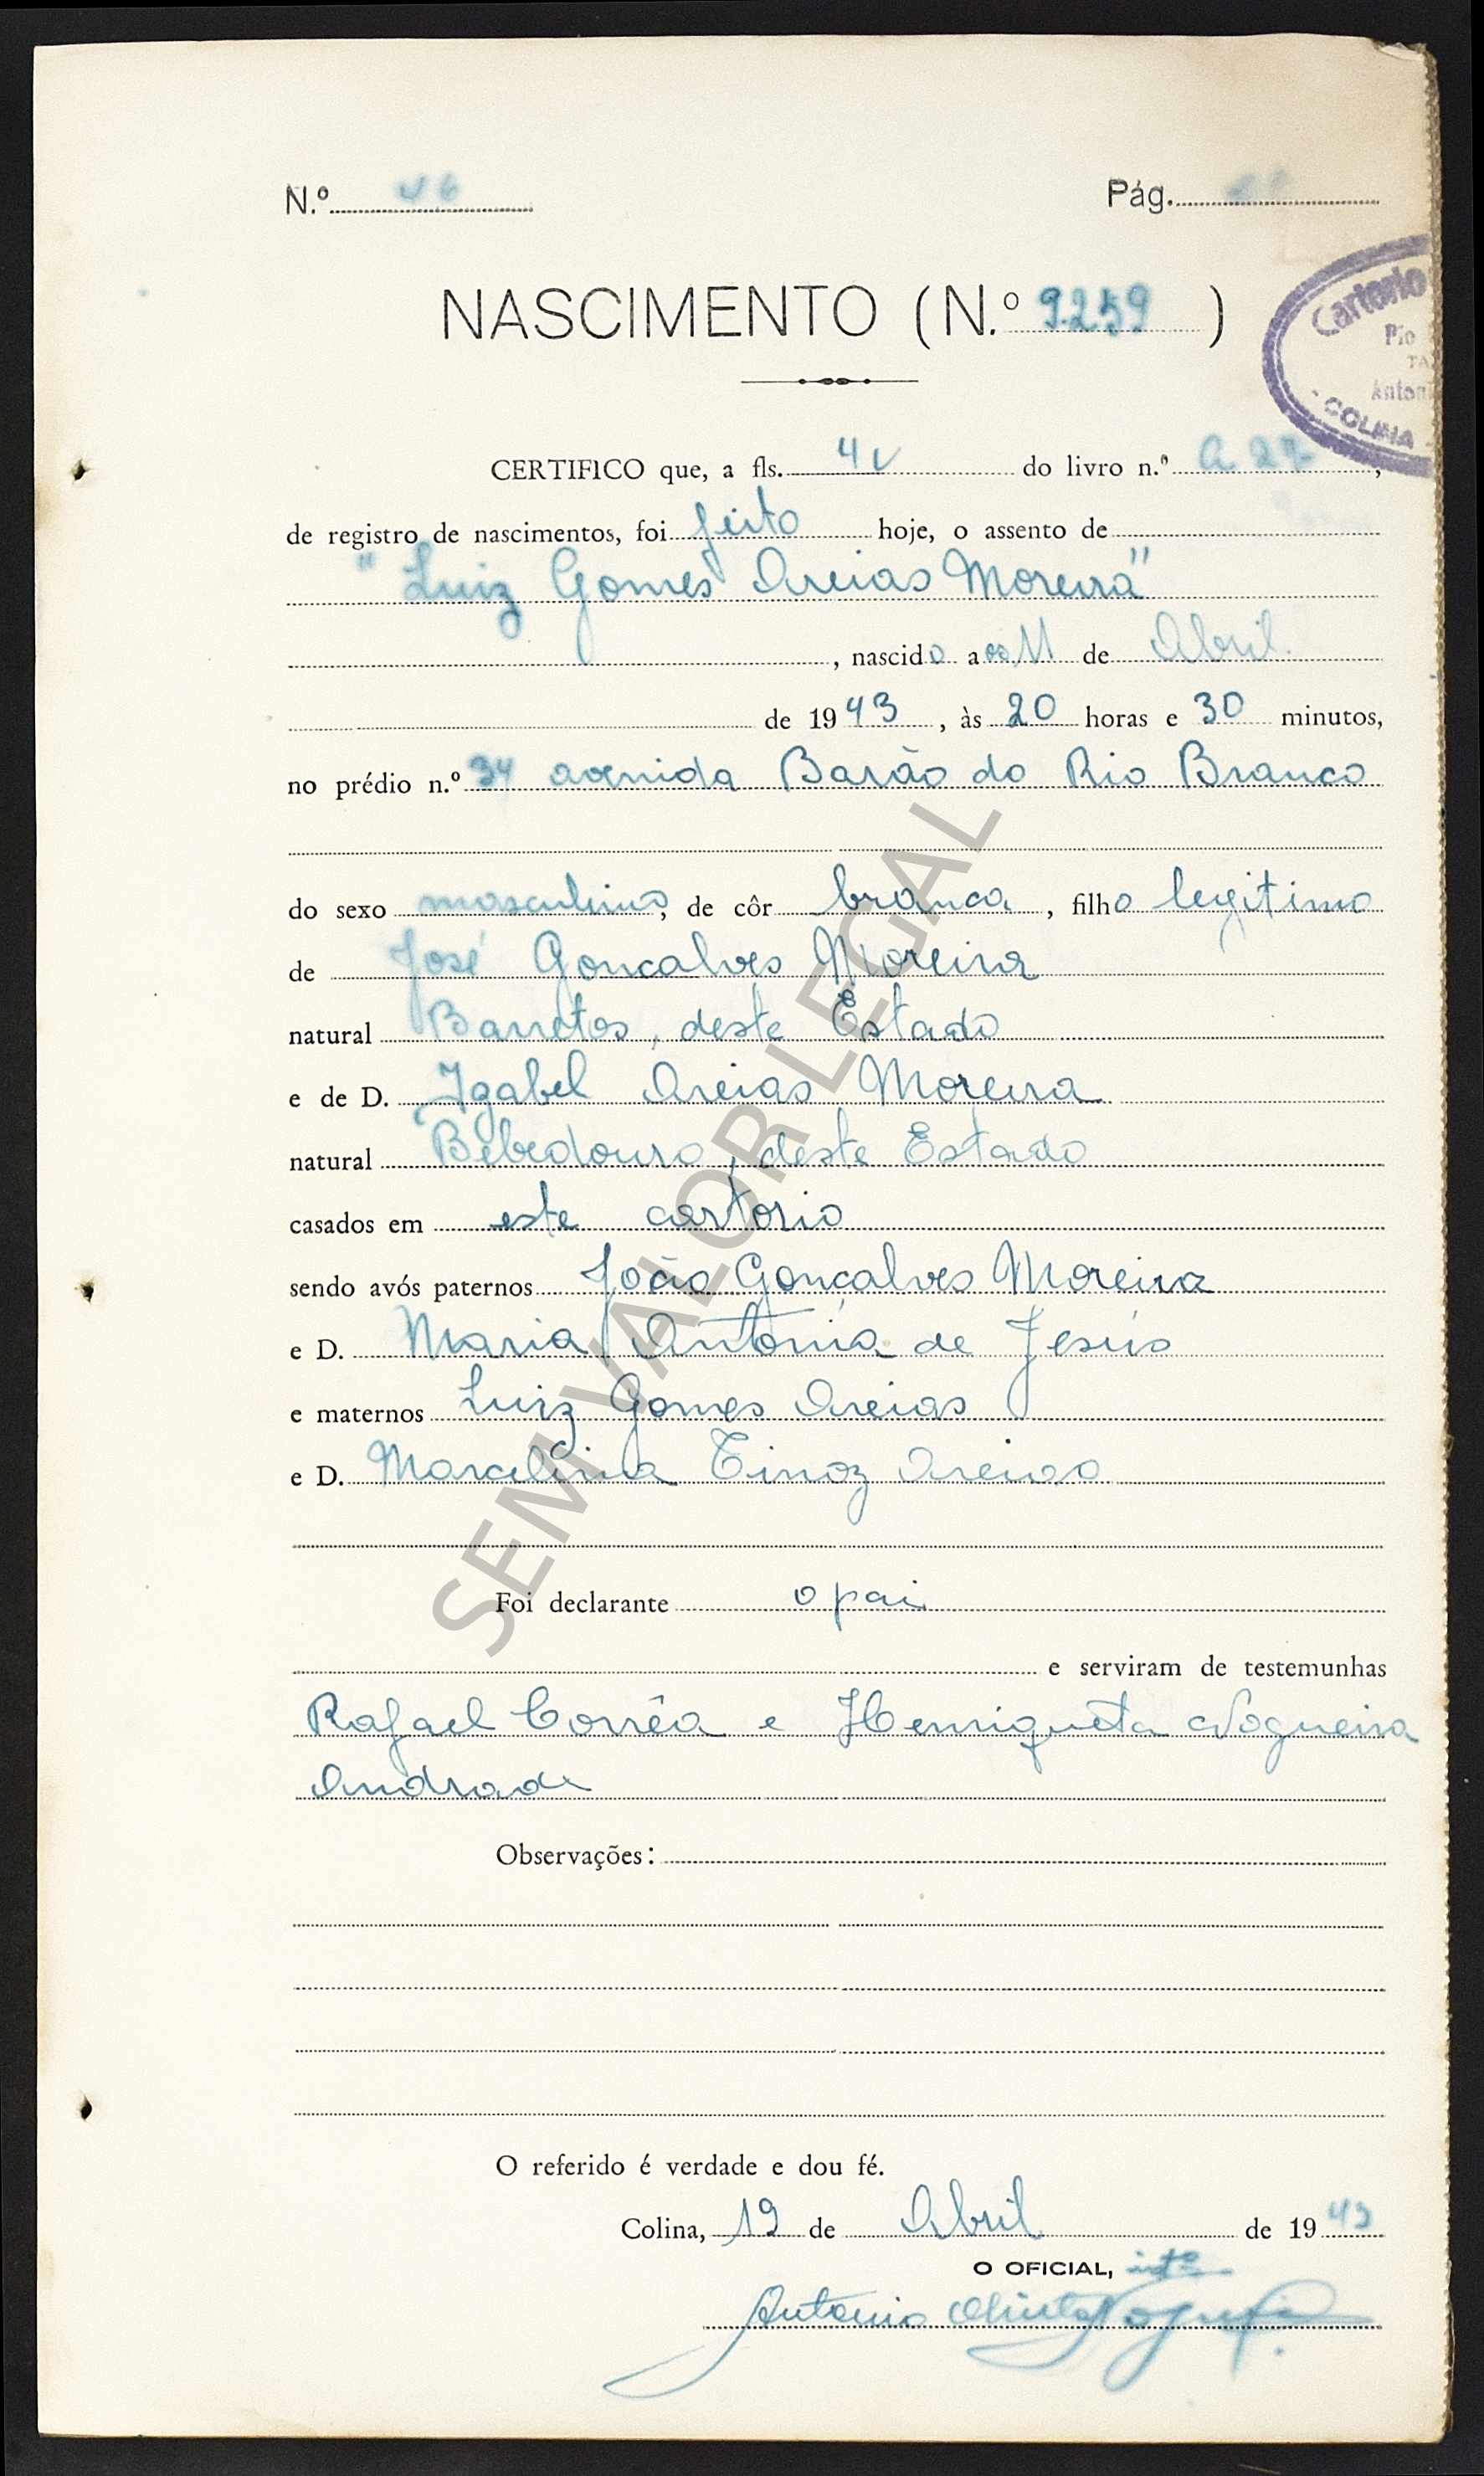 N.º
Pág.
NASCIMENTO (N.º 9.259)
Cartorio
Pio
Antoni
COLINA
CERTIFICO que, a fls. 4 v do livro n.º A 27,
de registro de nascimentos, foi feito hoje, o assento de
"Luiz Gomes Areias Moreira"
, nascido aos 11 de Abril
de 1943, às 20 horas e 30 minutos,
no prédio n.º 34 avenida Barão do Rio Branco
do sexo masculino, de côr branca, filho legitimo
de José Gonçalves Moreira
natural Barretos, deste Estado
e de D. Izabel Areias Moreira
natural Bebedouro, deste Estado
casados em este cartorio
sendo avós paternos João Gonçalves Moreira
e D. Maria Antonia de Jesus
e maternos Luiz Gomes Areias
e D. Marcelina Tinoz Areias
Foi declarante o pai
e serviram de testemunhas
Rafael Corrêa e Henriqueta Nogueira
Andrade
Observações:
O referido é verdade e dou fé.
Colina, 19 de Abril de 1943
O OFICIAL, intº
Antonio Nogueira
SEM VALOR LEGAL